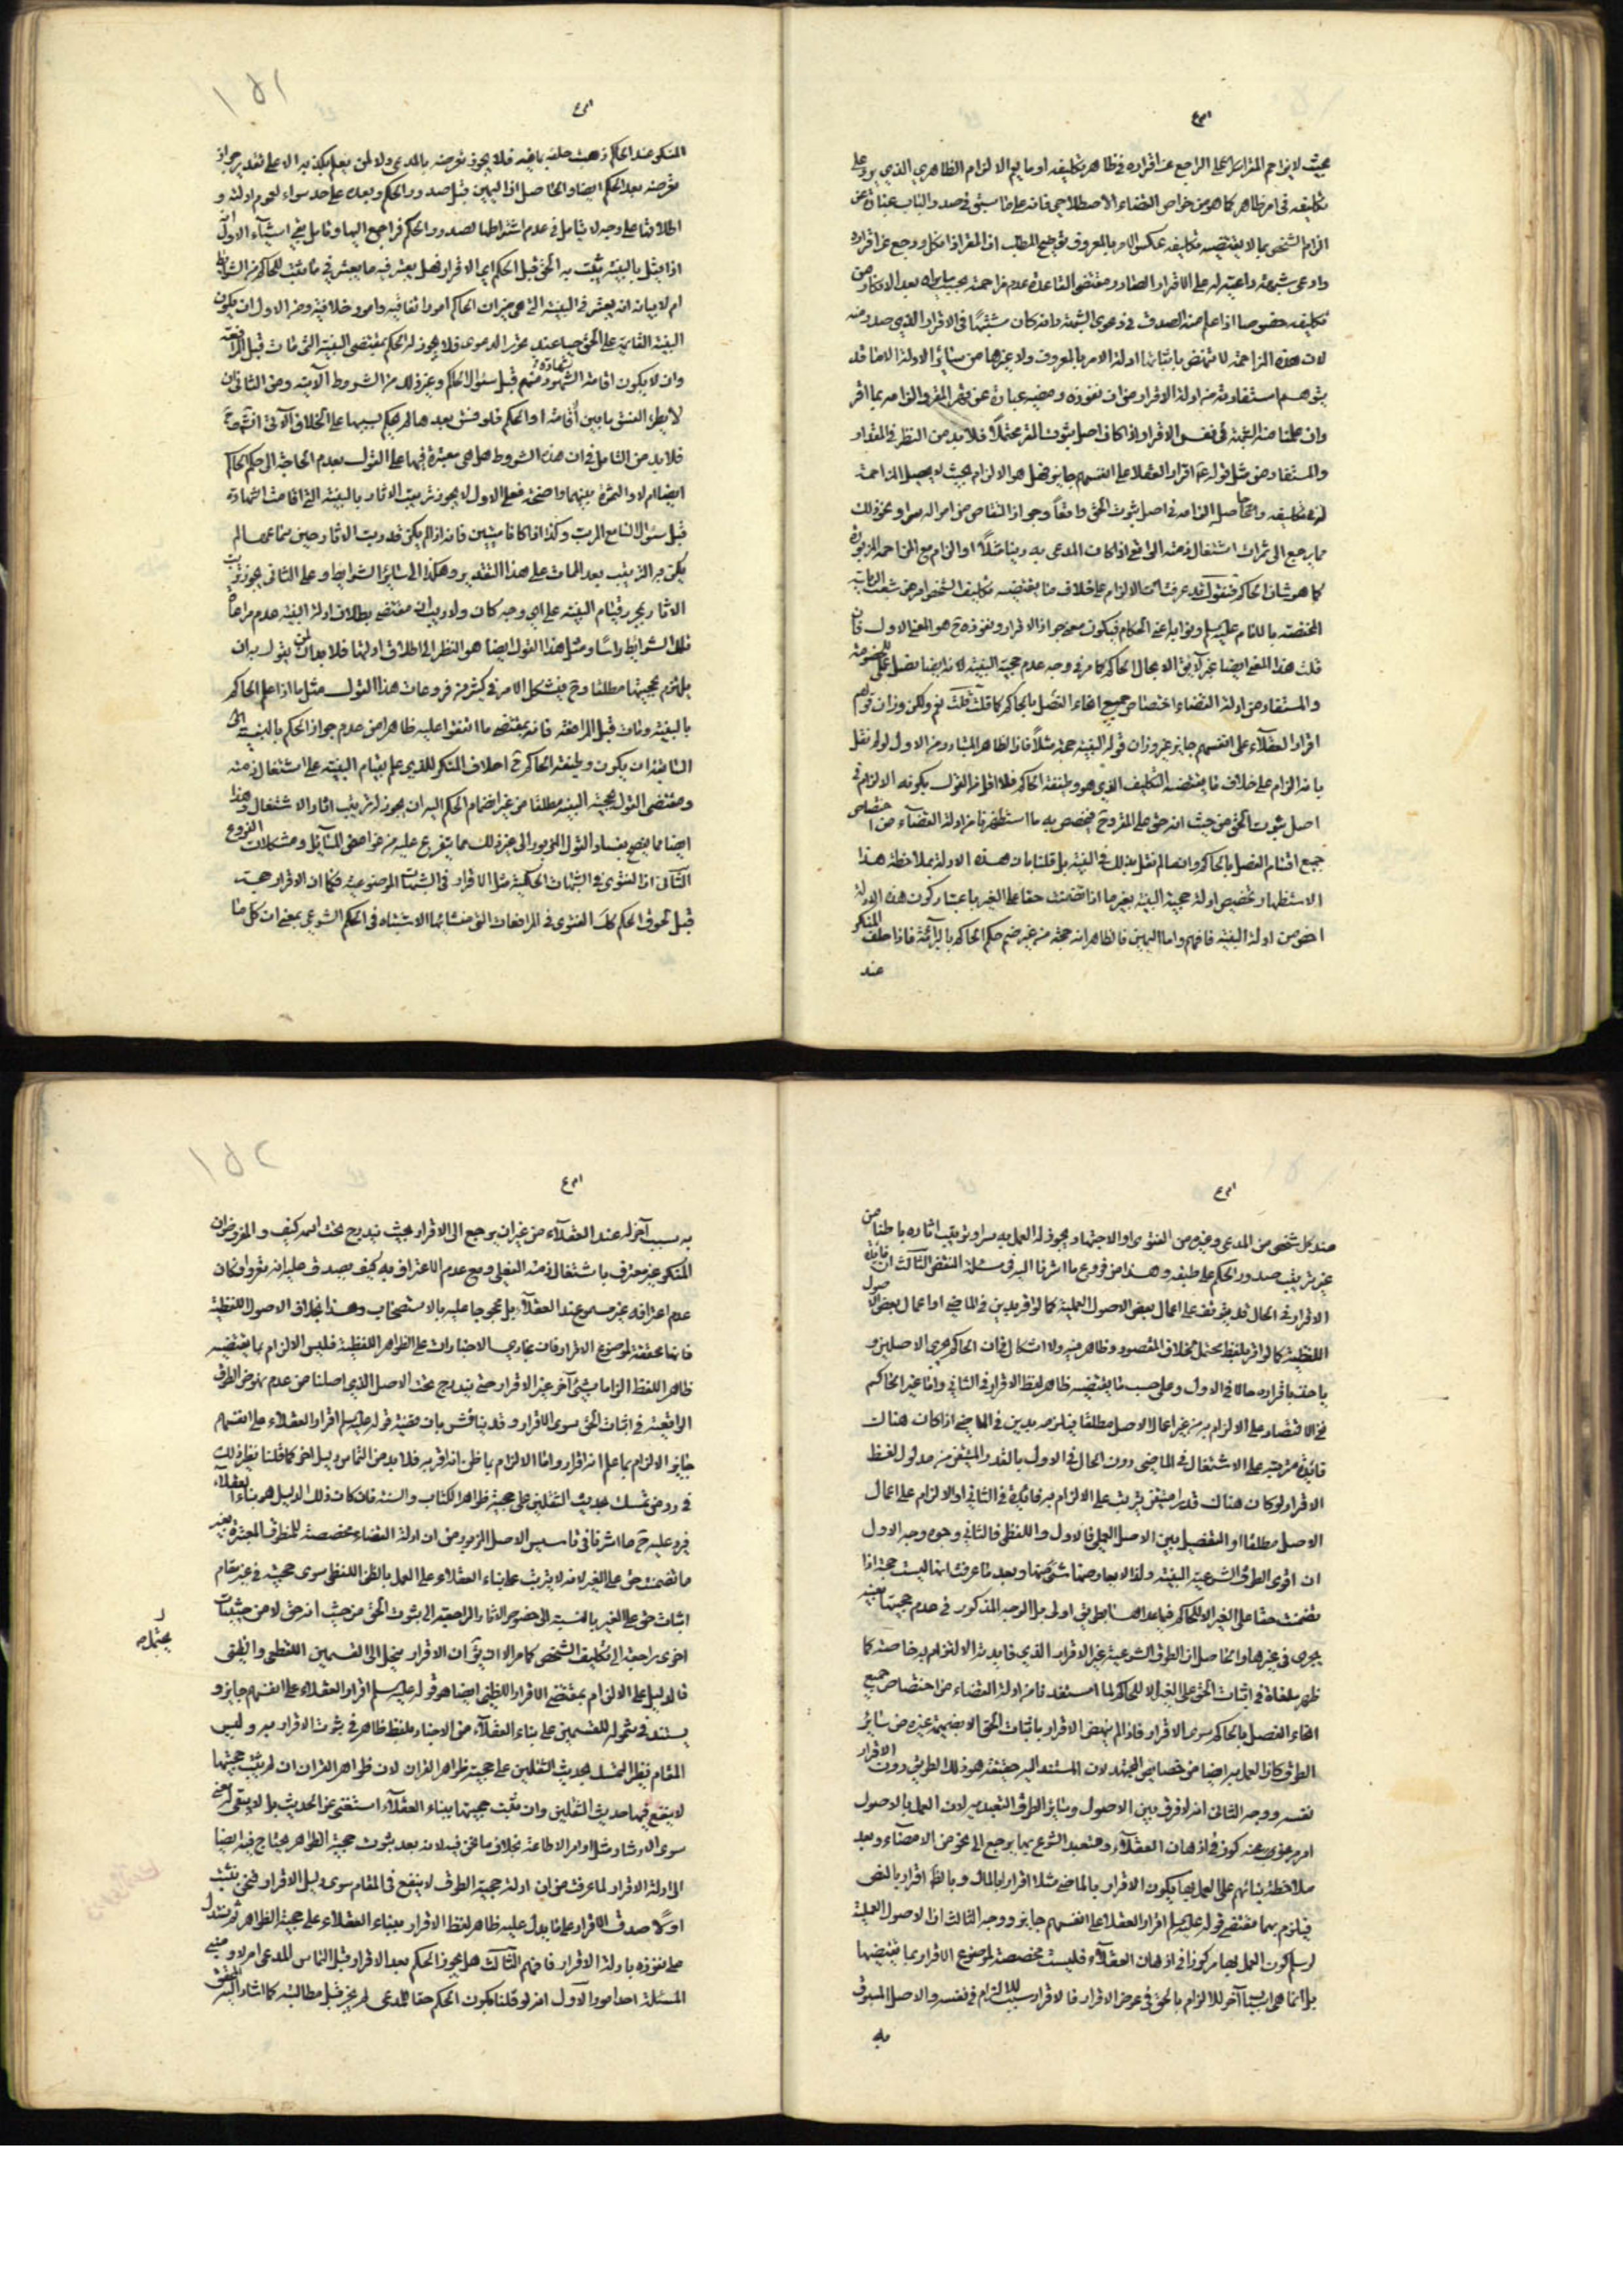 بحيث لا يزاحم المقر
الراجع عن اقراره في ظاهر تكليفه او ما يعم الالزام الظاهري الذي يرد على
تكليفه في امر ظاهر كما هو من خواص القضاء الاصطلاحي فانه على ما سبق في صدر الباب عبارة عن
الزام الشخص بما لا يقتضيه تكليفه عكس الامر بالمعروف
المقر اذا نكل ورجع عن اقراره
وادعى شبهة داعية له على الاقرار الصادر و مقتضى القاعدة عدم مزاحمته
بعد الانكار من
تكليفه خصوصا اذا علم منه الصدق في دعوى الشبهة وانه كان مشتبها في الاقرار الذي صدر منه
لان هذه المزاحمة لا تنهض باثباتها ادلة الامر بالمعروف ولا غيرها من سائر الادلة الا ما قد
يتوهم استفادته من ادلة الاقرار من ان نفوذه ومضيه عبارة عن
المقر والزامه بما اقر
وان علمنا منه الشبهة في نفس الاقرار اذا كان اصل ثبوت
محتملا فلا بد من النظر في المقدار
والمستفاد من مثل قوله ع اقرار العقلاء على انفسهم جايز فهل هو الالزام بحيث لا يحصل المزاحمة
له في تكليفه والحاصل الزامه في اصل ثبوت الحق واقعا وجواز التقاص من امواله سرا ونحو ذلك
مما يرجع الى ثمرات اشتغال ذمته الواقعي اذا كان المدعى به دينا مثلا او الزام مع المزاحمة المزبورة
كما هو شان الحاكم فنقول قد عرفت ان الالزام على خلاف ما يقتضيه تكليف الشخص امر من شعب الرياسة
المختصة بالامام عليه السلم ونوابه اعني الحكام فيكون معنى جواز الاقرار ونفوذه ح هو المعنى الاول فان
قلت هذا المعنى ايضا غير لايق الا بحال الحاكم كما مر في وجه عدم حجية البينة لانه ايضا فصل للخصومة
والمستفاد من ادلة القضاء اختصاص جميع انحاء الفصل بالحاكم كما قلت قلت نعم ولكن وزان قولهم
اقرار العقلاء على انفسهم جايز غير وزان قوله البينة حجة مثلا فان الظاهر المتبادر من الاول لو لم نقل
بانه الزام على خلاف ما يقتضيه التكليف الذي هو وظيفة الحاكم فلا اقل من القول بكونه الالزام في
اصل ثبوت الحق من حيث انه حق على المقر وح فيخصص به ما استظهرنا من ادلة القضاء من اختصاص
جميع اقسام الفصل بالحاكم وان لم نقل بذلك في البينة بل قلنا بان هذه الادلة بملاحظة هذا
الاستظهار تخصيص ادلة حجية البينة بغير ما اذا تضمنت حقا على الغير باعتبار كون هذه الادلة
اخص من ادلة البينة فافهم واما اليمين فالظاهر انه حجة من غير ضم حكم الحاكم بالبرائة فاذا حلف المنكر
عند
المنكر عند الحاكم ذهبت
فلا يجوز تعرضه بالمدعى ولا لمن يعلم بكذبه الا على تقدير جواز
تعرضه بعد الحكم ايضا والحاصل ان اليمين قبل صدور الحكم وبعده على حد سواء لعموم ادلته و
اطلاقها على وجه لا يتامل في عدم اشتراطها لصدور الحكم فراجع اليها وتامل بقي اشياء الاول انه
اذا قيل بالبينة يثبت به الحق قبل الحكم اي الاقرار فهل يعتبر فيه ما يعتبر في ما يثبت للحاكم من الشرايط
ام لا بيانه انه يعتبر في البينة التي هي ميزان الحاكم امور اتفاقية وامور خلافية ومن الاول ان يكون
البينة القائمة على الحق حيا عند
فلا يجوز له الحكم بمقتضى البينة التي ماتت قبل المرافعة
وان لا يكون اقامة الشهود شهادة منهم قبل سئوال الحاكم وغير ذلك من الشروط الآتية ومن الثاني ان
لا يطرء الفسق ما بين اقامتها والحكم فلو فسق بعدها لم يحكم بسببها على الخلاف الآتي
فلا بد من التامل في ان هذه الشروط هل هي معتبرة فيها على القول بعدم الحاجة الى حكم الحاكم
ايضا ام لا والثمرة بينهما واضحة فعلى الاول لا يجوز ترتيب الاثار بالبينة التي اقامت الشهادة
قبل سئوال السامع المرتب وكذا اذا كانا ميتين فانه اذا لم يكن قد رتب الاثار حين سماعهما لم
يكن له الترتيب بعد الممات على هذا التقدير وهكذا الى سائر الشرايط وعلى الثاني يجوز ترتيب
الاثار بمجرد قيام البينة على اي وجه كان ولا ريب ان مقتضى اطلاق ادلة البينة عدم مراعاة
تلك الشرايط راسا ومثل هذا القول ايضا هو النظر الى اطلاق ادلتها فلا بد لمن يقول به ان
يلتزم بحجيتها مطلقا وح فيشكل الامر في كثير من فروعات هذا القول مثل ما اذا علم الحاكم
بالبينة وماتت قبل المرافعة فانه بمقتضى ما اتفقوا عليه ظاهرا من عدم جواز الحكم بالبينة
ان يكون وظيفة الحاكم ح احلاف المنكر للذي علم بقيام البينة على اشتغال ذمته
ومقتضى القول بحجية البينة مطلقا من غير انضمام الحكم اليه ان يجوز له ترتيب اثار الاشتغال وهذا
ايضا مما يتضح به فساد القول المزبور الى غير ذلك مما يتفرع عليه من غوامض المسائل ومشكلات الفروع
الثاني ان الفتوى في الشبهات الحكمية مثل الاقرار في الشبهات الموضوعية فكما ان الاقرار حجة
قبل لحوق الحكم كك الفتوى في المرافعات التي منشائها الاشتباه في الحكم الشرعي بمعنى ان كل ما
عند كل شخص من المدعي وغيره من الفتوى او الاجتهاد يجوز له العمل به سرا وترتيب اثاره باطنا من
غير ترتيب صدور الحكم على طبقه وهذا من فروع ما اشرنا اليه في مسئلة النقض الثالث ان فائدة
الاقرار في الحال قد يتوقف على اعمال بعض الاصول العملية كما لو اقر بدين في الماضي او اعمال بعض الاصول
اللفظية كما لو اقر بلفظ يحتمل خلاف المقصود وظاهر فيه ولا اشكال في ان الحاكم يجري الاصلين و
ياخذ باقراره حالا في الاول وعلى حسب ما يقتضيه ظاهر لفظ الاقرار في الثاني واما غير الحاكم
ففي الاقتصار على الالزام به من غير اعمال الاصل مطلقا فيلزم بدين في الماضي اذا كان هناك
فائدة مترتبة على الاشتغال في الماضي دون الحال في الاول بالقدر المتيقن من مدلول لفظ
الاقرار لو كان هناك قدر متيقن يترتب على الالزام به فائدة في الثاني او الالزام على اعمال
الاصل مطلقا او التفصيل بين الاصل العملي فالاول واللفظي فالثاني وجوه وجه الاول
ان اقوى الطرق الشرعية البينة ولذا لا يعارضها شئ منها وبعد ما عرفت انها ليست حجة اذا
تضمنت حقا على الغير الا للحاكم فما عداها بطريق اولى بل الوجه المذكور في عدم حجيتها بعينه
يجري في غيرها والحاصل ان الطرق الشرعية غير الاقرار الذي فايدته الالتزام به خاصة كما
ظهر ملغاة في اثبات الحق على الغير الا للحاكم لما استفدنا من ادلة القضاء من اختصاص جميع
انحاء الفصل بالحاكم سوى الاقرار فاذا لم ينهض الاقرار باثبات الحق الا بضميمة غيره من سائر
الطرق كان العمل به ايضا من خصايص المجتهد لان المستند اليه حقيقة هو ذلك الطريق دون الاقرار
نفسه ووجه الثاني انه لا فرق بين الاصول وسائر الطرق التعبدية لان العمل بالاصول
امر مركوز في اذهان العقلاء وتعبد الشرع بها يرجع الى نحو من الامضاء وبعد
ملاحظة بنائهم على العمل بها يكون الاقرار بالماضي مثلا اقرارا بالحال وبالظاهر اقرارا بالنص
فيلزم بهما مقتضى قوله عليه السلم اقرار العقلاء على انفسهم جايز ووجه الثالث ان الاصول العملية
لو سلم كون العمل بها مركوزا في اذهان العقلاء فليست مخصصة لموضوع الاقرار بما يقتضيها
بل انما هي اسباب آخر للالزام بالحق في عرض الاقرار فالاقرار سبب للالزام في نفسه والاصل المسبوق
به
به سبب آخر له عند العقلاء من غير ان يرجع الى الاقرار بحيث يندرج تحت اسمه كيف والمفروض ان
المنكر غير معترف باشتغال ذمته الفعلي ومع عدم الاعتراف به كيف يصدق عليه انه مقر وان كان
عدم اعترافه غير مسموع عند العقلاء بل محجوجا عليه بالاستصحاب وهذا بخلاف الاصول اللفظية
فانها محققة لموضوع الاقرار فان مجاري الاخبارات على الظواهر اللفظية فليس الالزام بما يقتضيه
ظاهر اللفظ الزاما بشئ آخر غير الاقرار حتى يندرج تحت الاصل الذي اصلنا من عدم نهوض الطرق
الواقعية في اثبات الحق سوى الاقرار وقد يناقش بان قضية قوله عليه السلم اقرار العقلاء على انفسهم
جايز الالزام بما علم انه اقرار واما الالزام بما ظن انه اقر به فلا بد من التماس دليل اخر كما قلنا نظير ذلك
في رد من تمسك بحديث الثقلين على حجية ظواهر الكتاب والسنة فان كان ذلك الدليل هو بناء العقلاء
فيرد عليه ح ما اشرنا في تاسيس الاصل المزبور من ان ادلة القضاء مخصصة للطرق المعتبرة بغير
ما تضمنت حق على الغير لانه لا يترتب على بناء العقلاء على العمل بالظن اللفظي سوى حجيته في غير مقام
اثبات حق على الغير بالنسبة الى خصوص الاثار الراجعة الى ثبوت الحق من حيث انه حق لا من حيثيات
اخرى راجعة الى تكليف الشخص كما مر الا ان يق ان الاقرار ينحل الى القسمين القطعي والظني
يحتمل
فالدليل على الالزام بمقتضى الاقرار الظني ايضا هو قوله عليه السلم اقرار العقلاء على انفسهم جايز و
يستند في شموله للقسمين على بناء العقلاء من الاخبار بلفظ ظاهر في ثبوت الاقرار به وليس
المقام نظير التمسك بحديث الثقلين على حجية ظواهر القران لان ظواهر القران ان لم يثبت حجيتها
لا ينفع فيها حديث الثقلين وان ثبت حجيتها ببناء العقلاء استغنى عن الحديث بل لا يبقى له معنى
سوى الارشاد مثل اوامر الاطاعة بخلاف ما نحن فيه لانه بعد ثبوت حجية الظواهر يحتاج فيه ايضا
الى ادلة الاقرار لما عرفت من ان ادلة حجية الطرق لا ينفع في المقام سوى دليل الاقرار فنحن نثبت
اولا صدق الاقرار على ما يدل عليه ظاهر لفظ الاقرار ببناء العقلاء على حجية الظواهر ثم نستدل
على نفوذه بادلة الاقرار فافهم الثالث هل يجوز الحكم بعد الاقرار قبل التماس المدعى ام لا ومبنى
المسئلة احد امور الاول انه لو قلنا بكون الحكم حقا للمدعى لم يجز قبل مطالبته كما اشار اليه المحقق